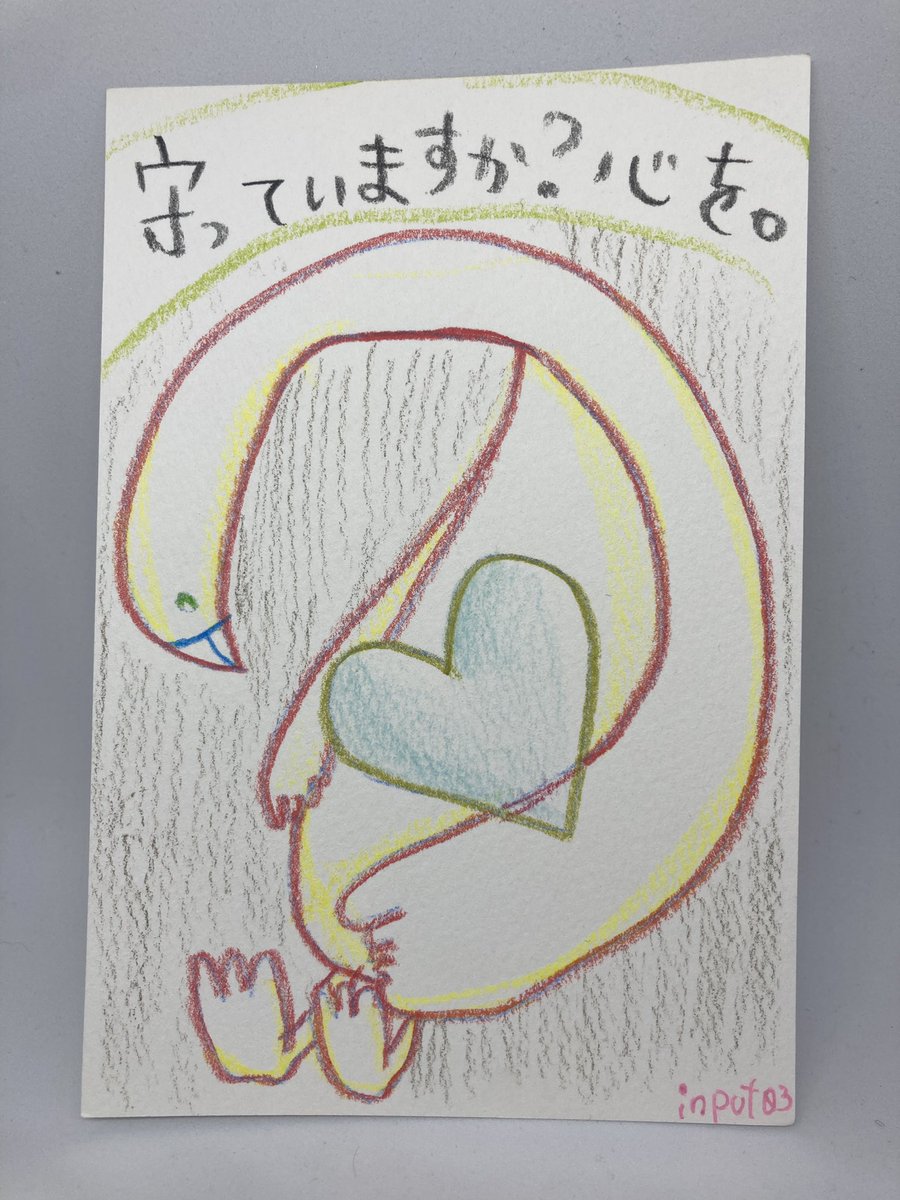 守っていますか?心を。
input03